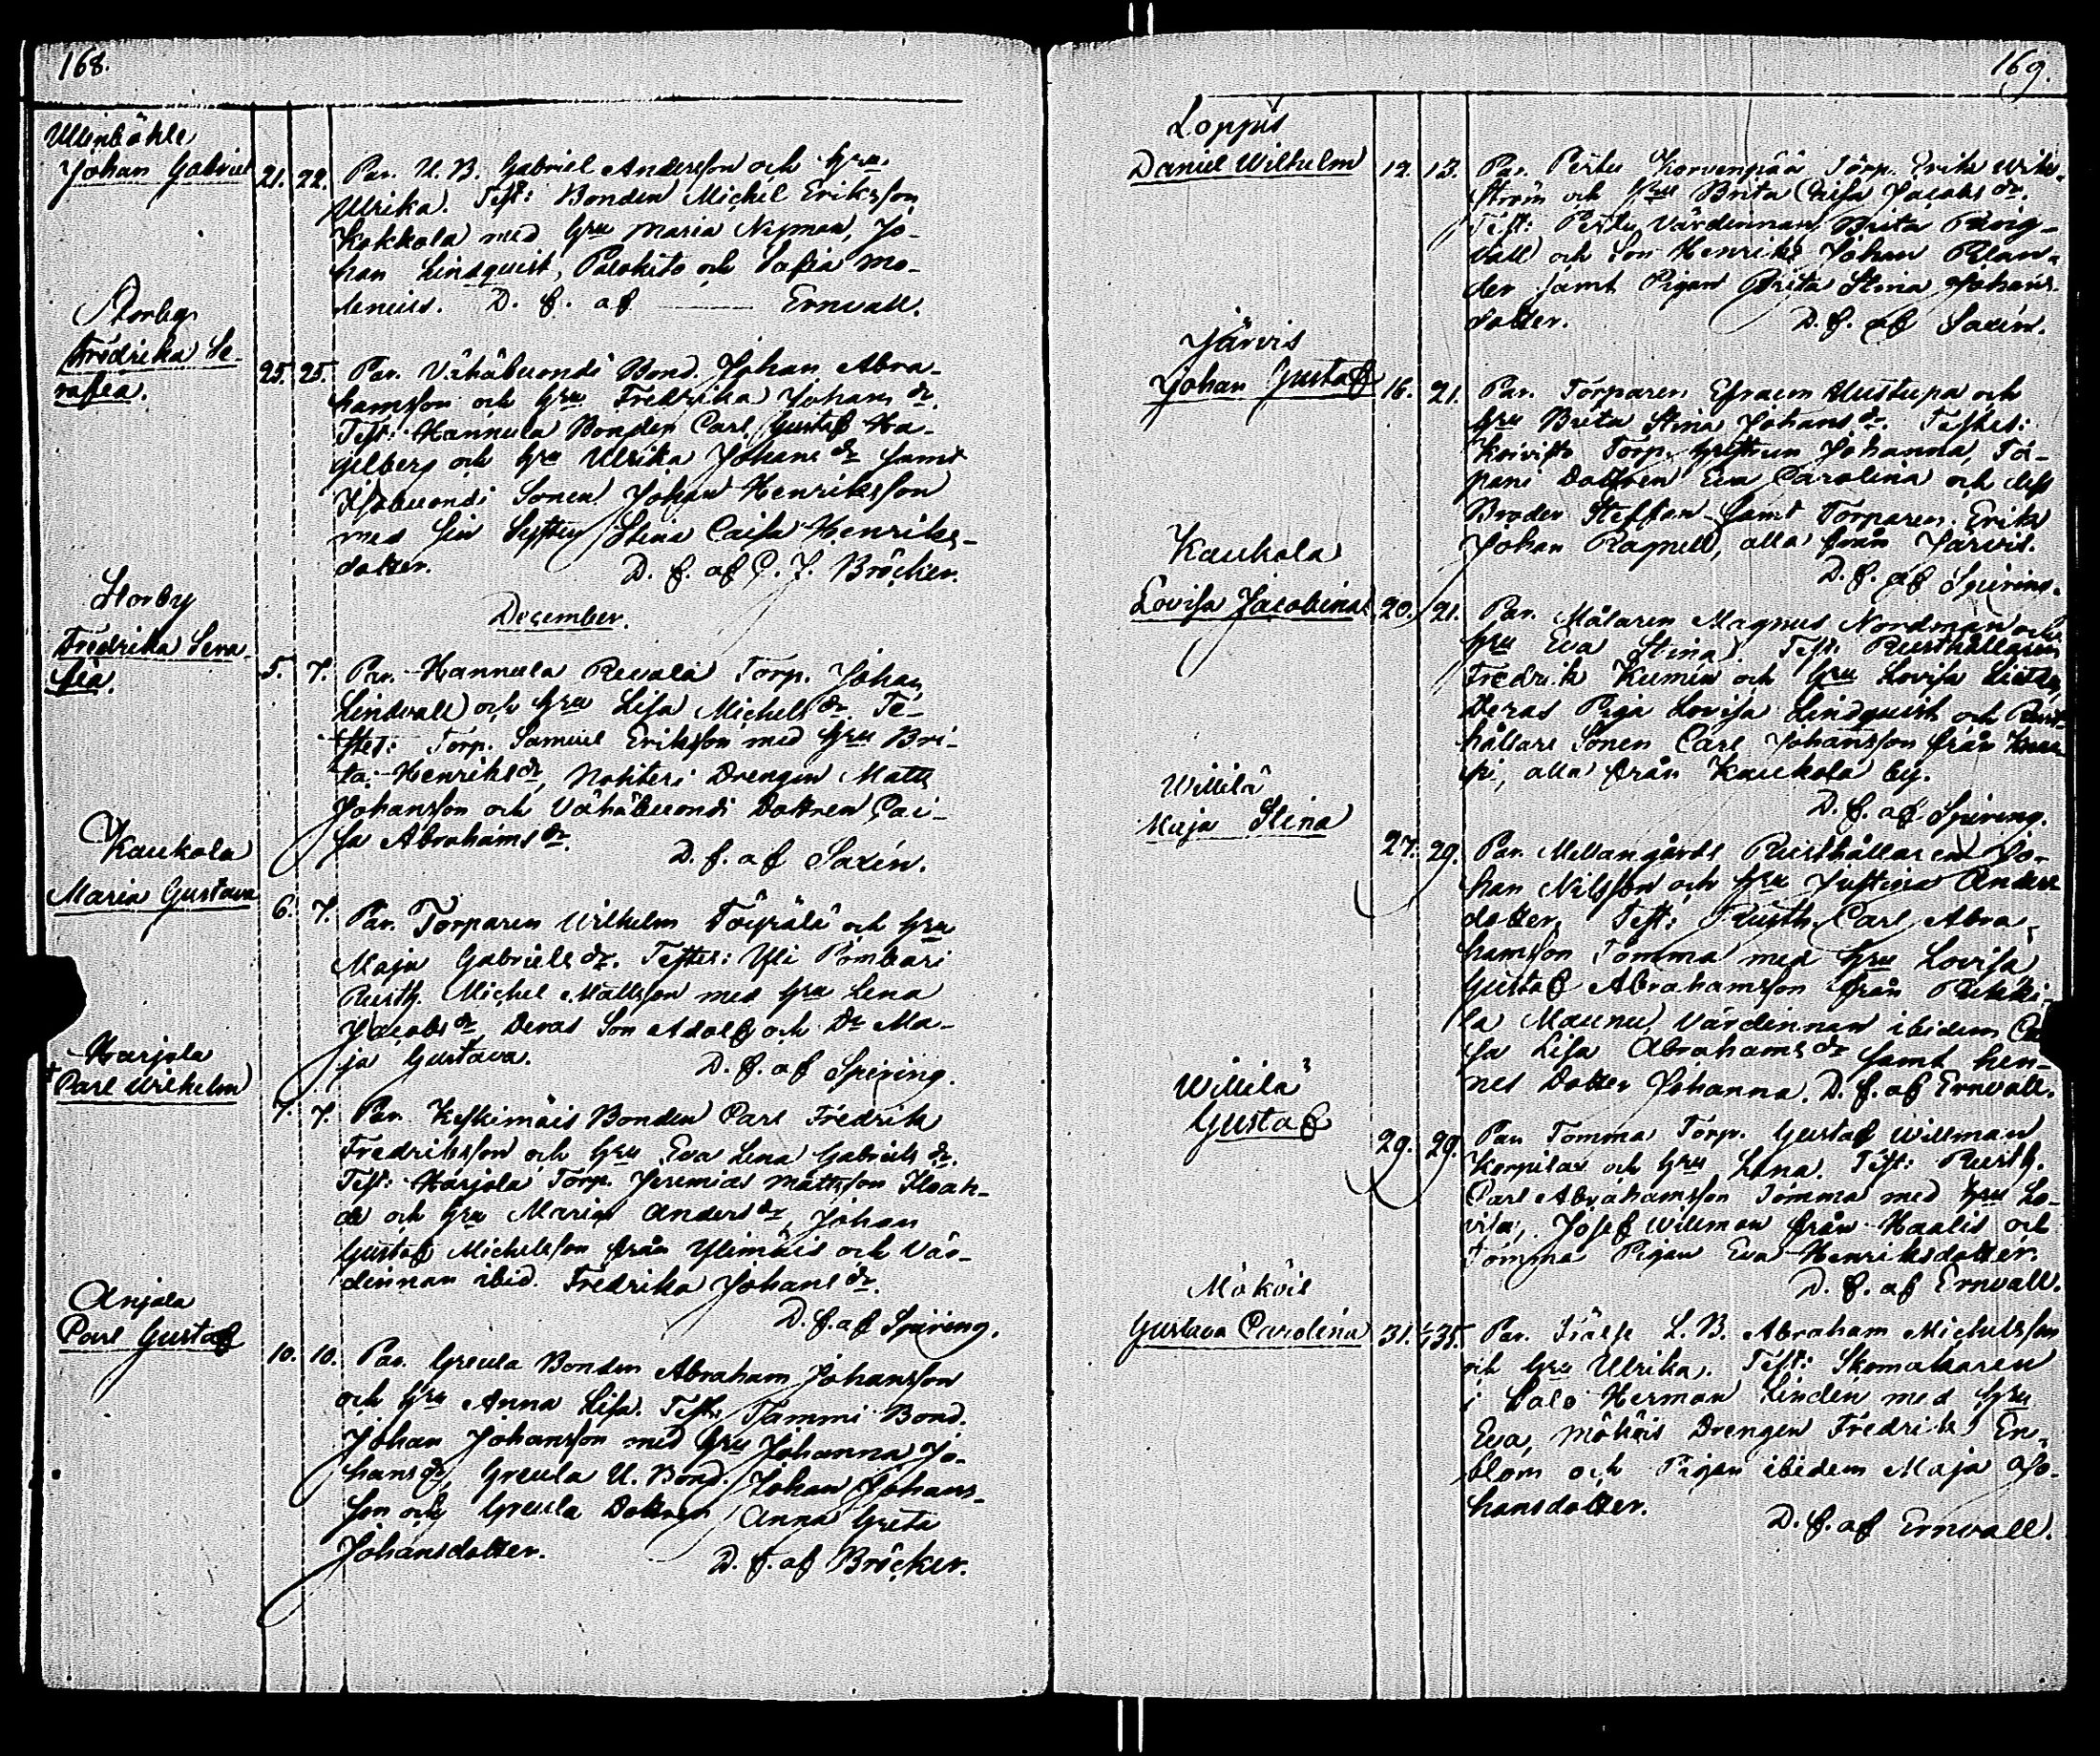 168.
Ullenböhle
Johan Gabriel 21. 22. Par. U. B. Gabriel Andersson och hru
Ulrika. Test: Bonden Michel Eriksson
Kokkola med hru Maria Nyman, Jo-
han Lindquist, Palokito och Safia Mo-
denius. D. f. af Ernvall.
Storby
Fredrika Se-
rafia. 25. 25. Par. Vähäbuondi Bond. Johan Abra-
hamsson och hru Fredrika Johans dr.
Test: Hannula Bonden Carl Gustaf Ha-
gelberg och hru Ulrika Johans dr samt
Isobuondi Sonen Johan Henriksson
med sin Syster Stina Caisa Henriks-
dotter. D. f. af C. J. Bröcker.
December.
Storby
Fredrika Sera-
fia. 5. 7. Par. Hannula Revala Torp. Johan
Lindvall och hru Lisa Michels dr Te-
stes: Torp. Samuel Eriksson med hru Bri-
ta Henriksdr, Nohteri Drengen Matts
Johansson och Vähäbuondi Dottren Cai-
sa Abrahams dr. D. f. af Saxén.
Kaukola
Maria Gustava 6. 7. Par. Torparen Wilhelm Töyrälä och hru
Maja Gabriels dr. Testes: Yli Pombari
Rusth. Michel Mattsson med hru Lena
Jacobs dr, Deras Son Adolf och Dr Ma-
ja Gustava. D. f. af Spiring.
Harjola
+ Carl Wilhelm 7. 7. Par. Keskimäis Bonden Carl Fredrik
Fredriksson och hru Eva Lena Gabriels dr.
Test: Harjola Torp. Jeremias Mattsson
och hru Maria Anders dr, Johan
Gustaf Michelsson från Ylimäis och Vär-
dinnan ibid. Fredrika Johans dr.
D. f. af Spiring.
Anjala
Carl Gustaf 10. 10. Par. Greula Bonden Abraham Johansson
och hru Anna Lisa. Test: Tammi Bond.
Johan Johansson med hru Johanna Jo-
hans dr, Greula U. Bond. Johan Johans-
son och Greula Dottren Anna Greta
Johansdotter. D. f. af Bröcker.
169.
Loppis
Daniel Wilhelm 12. 13. Par. Perttu Korvenpää Torp. Erik Wik-
ström och hru Brita Caisa Jacobs dr.
Test: Perttu Värdinnan Brita
och Son Henrik Johan
der samt Pigan Brita Stina Johans-
dotter. D. f. af Saxén.
Järvis
Johan Gustaf 16. 21. Par. Torparen Efraem Mustupa och
hru Brita Stina Johans dr. Testes:
Koivisto Torp. hustrun Johanna, Ta-
pani Dottren Eva Carolina och dess
Broder Steffan samt Torparen Erik
Johan Ragnell, alla från Jarvis.
D. f. af Spiring.
Kaukola
Lovisa Jacobina 20. 21. Par. Målaren Magnus Nordman och
hru Eva Stina. Test. Rusthållaren
Fredrik Kumin och hru Lovisa
Deras Piga Lovisa Lindquist och Rust-
hållare Sonen Carl Johansson från
alla från Kaukola by.
D. f. af Spiring.
Willilä
Maja Stina 27. 29. Par. Mellangårds Rusthållaren Jo-
han Nilsson och hru Justina Anders
dotter. Test: Rusth. Carl Abra-
hamsson Tomma med hru Lovisa
Gustaf Abrahamsson från Rikki-
la Maunu, Värdinnan ibidem
sa Lisa Abrahams dr samt hen-
nes Dotter Johanna. D. f. af Ernvall.
Willilä
Gustaf 29. 29. Par. Tomma Torp. Gustaf Willman
Korpilax och hru Lena. Test: Rusth.
Carl Abrahamsson Tomma med hru Lo-
visa, Josef Willman från Haalis och
Tomma Pigan Eva Henriksdotter.
D. f. af Ernvall.
Mököis
Gustava Carolina 31. 1/1 35. Par. L. B. Abraham Michelsson
och hru Ulrika. Test: Skomakaren
i Salo Herman Linden med hru
Eva, Mököis Drengen Fredrik En-
blom och Pigan ibidem Maja Jo-
hansdotter. D. f. af Ernvall.